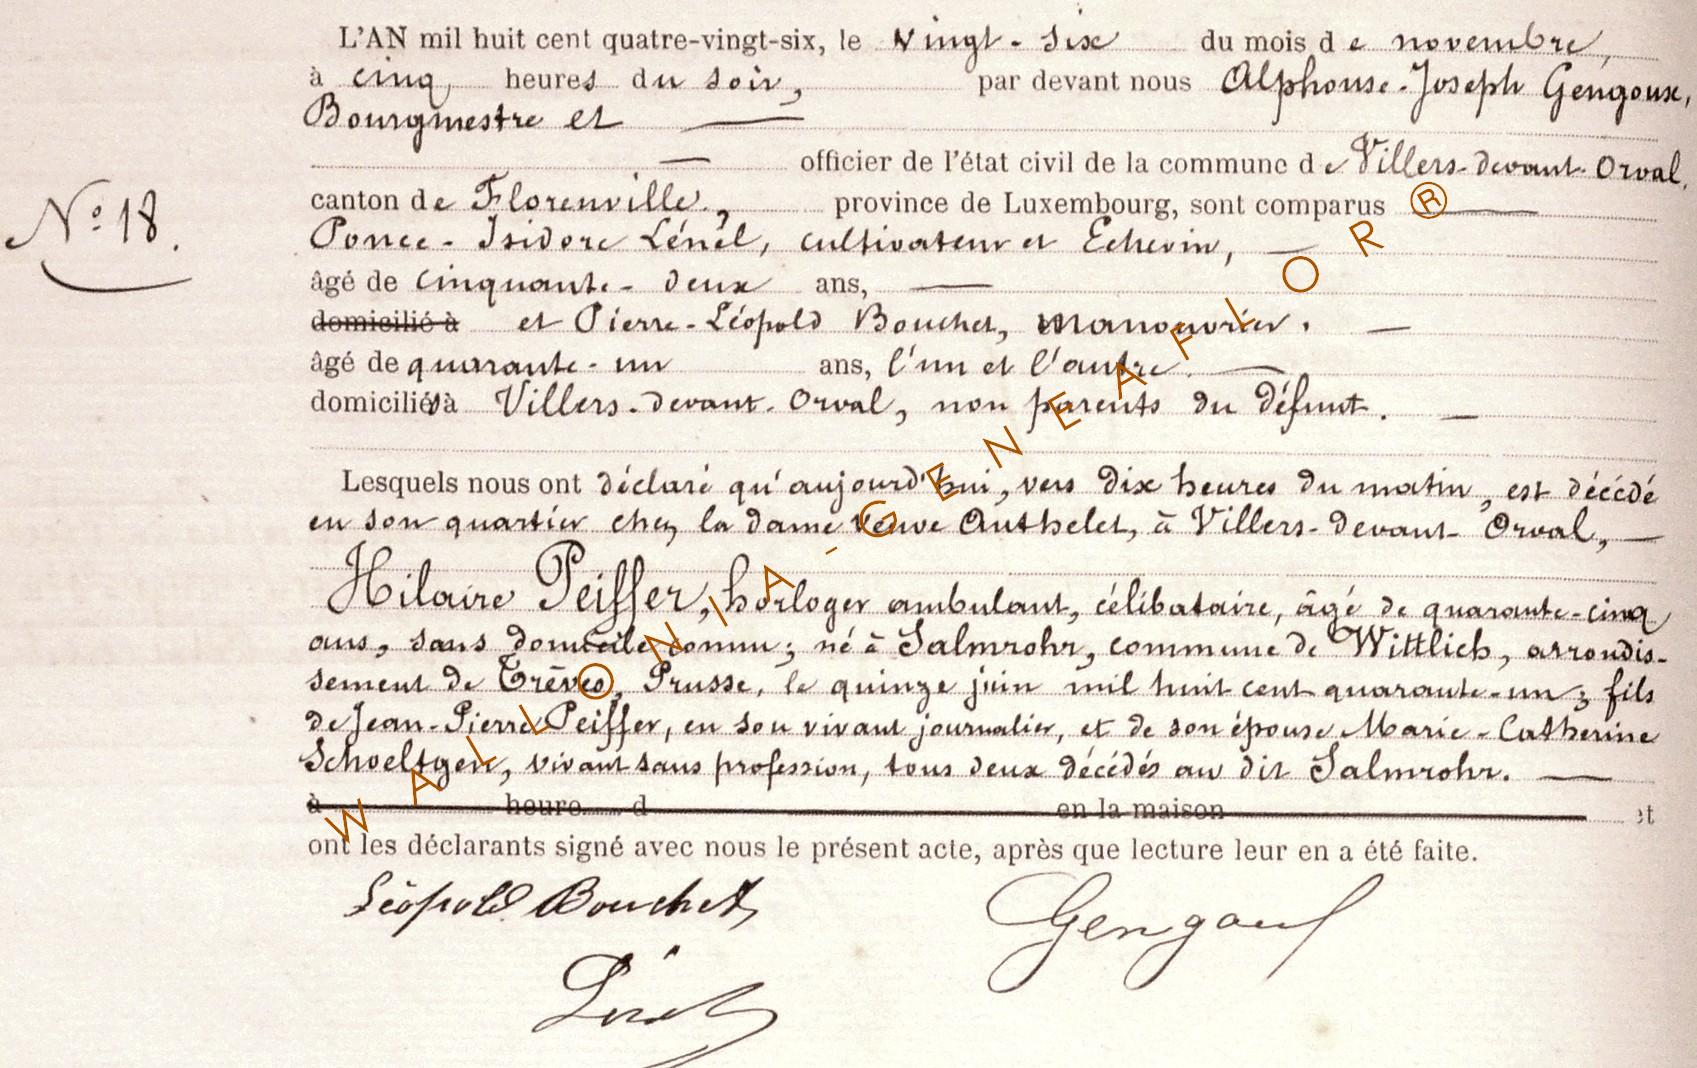 L'AN mil huit cent quatre-vingt-six, le vingt-six du mois de novembre,
à cinq heures du soir, par devant nous Alphonse-Joseph Gengoux,
Bourgmestre et
officier de l'état civil de la commune de Villers-devant-Orval,
N° 18.
canton de Florenville, province de Luxembourg, sont comparus
Ponce-Isidore Lénèl, cultivateur et Echevin,
âgé de cinquante-deux ans,
domicilié à et Pierre-Léopold Bouchet, manouvrier.
âgé de quarante-un ans, l'un et l'autre
domiciliés à Villers-devant-Orval, non parents du défunt.
Lesquels nous ont déclaré qu'aujourd'hui, vers dix heures du matin, est décédé
en son quartier chez la dame veuve Authelet, à Villers-devant-Orval,
Hilaire Peiffer, horloger ambulant, célibataire, âgé de quarante-cinq
ans, sans domicile connu; né à Salmrohr, commune de Wittlich, arrondis-
sement de Trèves, Prusse, le quinze juin mil huit cent quarante-un; fils
de Jean-Pierre Peiffer, en son vivant journalier, et de son épouse Marie-Catherine
Schoeltgen, vivant sans profession, tous deux décédés au dit Salmrohr.
à heure d en la maison et
ont les déclarants signé avec nous le présent acte, après que lecture leur en a été faite.
Léopold Bouchet Gengoux
WALLONIA-GENEAFLOR ®